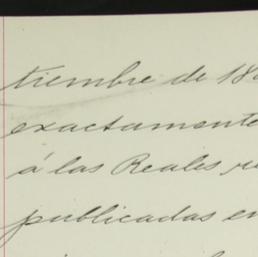 tiembre de 18
exactamente
á las Reales
publicadas en